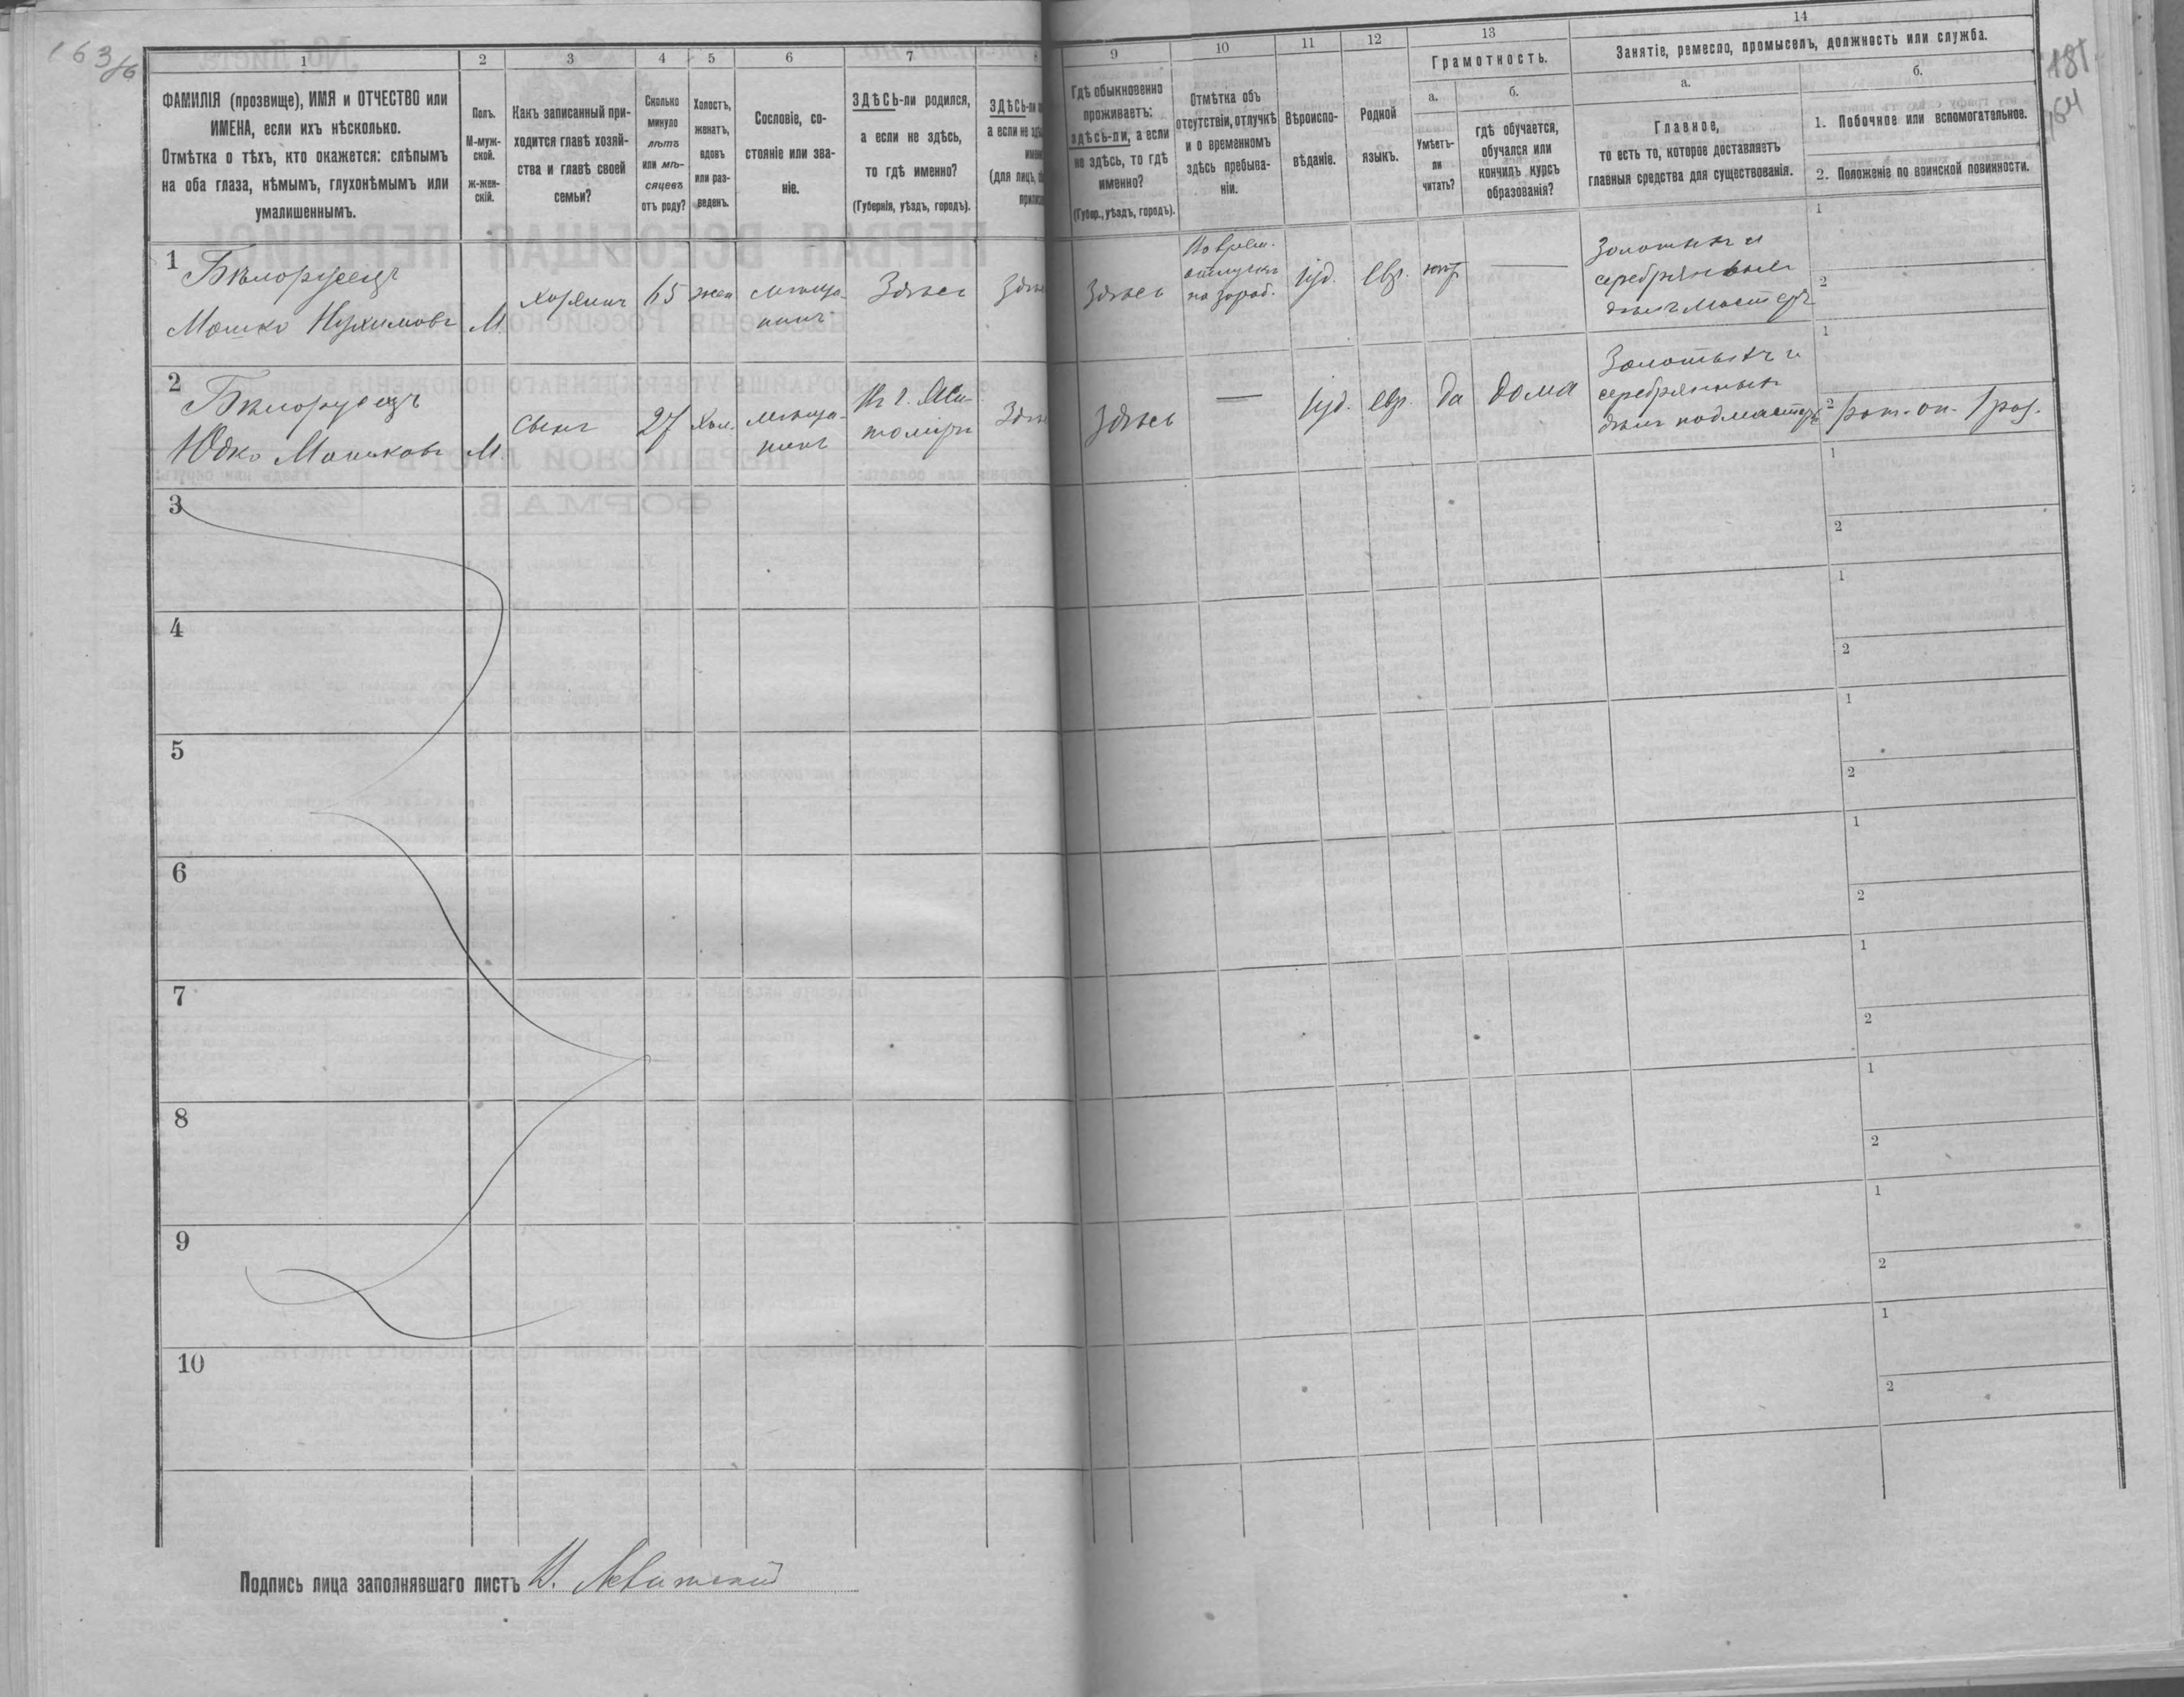 163/6
1
2
3
4
5
6
7
8
ФАМИЛІЯ (прозвище), ИМЯ и ОТЧЕСТВО или
ИМЕНА, если ихъ нѣсколько.
Отмѣтка о тѣхъ, кто окажется: слѣпымъ
на оба глаза, нѣмымъ, глухонѣмымъ или
умалишеннымъ.
Полъ.
М-муж-
ской.
ж-жен-
скій.
Какъ записанный при-
ходится главѣ хозяй-
ства и главѣ своей
семьи?
Сколько
минуло
лѣтъ
или мѣ-
сяцевъ
отъ роду?
Холостъ,
женатъ,
вдовъ
или раз-
веденъ.
Сословіе, со-
стояніе или зва-
ніе.
ЗДѢСЬ-ли родился,
а если не здѣсь,
то гдѣ именно?
(Губернія, уѣздъ, городъ).
ЗДѢСЬ-ли
а если не
(для лицъ,
9
10
11
12
13
14
Гдѣ обыкновенно
проживаетъ:
здѣсь-ли, а если
не здѣсь, то гдѣ
именно?
(Губер., уѣздъ, городъ).
Отмѣтка объ
отсутствіи, отлучкѣ
и о временномъ
здѣсь пребыва-
ніи.
Вѣроиспо-
вѣданіе.
Родной
языкъ.
Грамотность.
а.
Умѣетъ-
ли
читать?
б.
гдѣ обучается,
обучался или
кончилъ курсъ
образованія?
Занятіе, ремесло, промыселъ, должность или служба.
а.
Главное,
то есть то, которое доставляетъ
главныя средства для существованія.
б.
1. Побочное или вспомогательное.
2. Положеніе по воинской повинности.
181.
164
1
Бѣлорусецъ
Мошко Нухимовъ
М.
хозяинъ
65
жен
мѣща-
нинъ
Здѣсь
Здѣсь
Во врем.
отлучкѣ
на зараб.
іуд.
евр.
нѣтъ
—
Золотыхъ и
серебряныхъ
дѣлъ мастеръ
1
2
2
Бѣлорусецъ
Юдко Мошковъ
М.
Сынъ
27
хол.
мѣща-
нинъ
Въ г. Жи-
томірѣ
Здѣсь
—
іуд.
евр.
да
дома
Золотыхъ и
серебряныхъ
дѣлъ подмастеръ
1
2
рат. оп. 1 раз.
3
1
2
4
1
2
5
1
2
6
1
2
7
1
2
8
1
2
9
1
2
10
1
2
Подпись лица заполнявшаго листъ